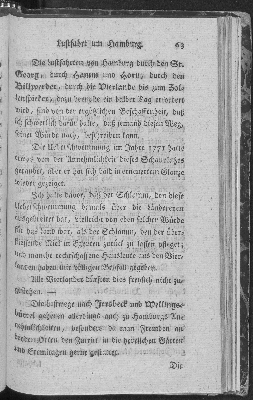 Lustfahrt um Hamburg. 63
Die Lustfahrten von Hamburg durch den St.
Georg, durch Hamm und Horn, durch den
Billwerder, durch die Vierlande bis zum Zol-
lenspieker, dazu beynahe ein halber Tag erfordert
wird, sind von der ergötzlichen Beschaffenheit, daß
ich schwerlich dafür halte, daß jemand diesen Weg,
seiner Würde nach, beschreiben kann.
Die Ueberschwemmung im Jahre 1771 hatte
etwas von der Annehmlichkeit dieses Schauplatzes
geraubet, aber er hat sich bald in erneuertem Glanze
wieder gezeiget.
Ich halte davor, daß der Schlamm, den diese
Ueberschwemmung damals über die Ländereyen
ausgebreitet hat, vielleicht von eben solcher Würde
für das Land war, als der Schlamm, den der über-
fließende Nil in Egypten zurück zu lassen pfleget;
und manche rechtschaffene Hausleute aus den Vier-
landen haben mir völligen Beyfall gegeben.
Alle Vierlander dürften dies freylich nicht zu
wünschen. —
Die Wege nach Jersbeck und Wellings-
büttel gehören allerdings auch zu Hamburgs An-
nehmlichkeiten, besonders da man Fremden an
beyden Orten den Zutritt in die herrlichen Gärten
und Eremitagen gerne gestattet.
Die